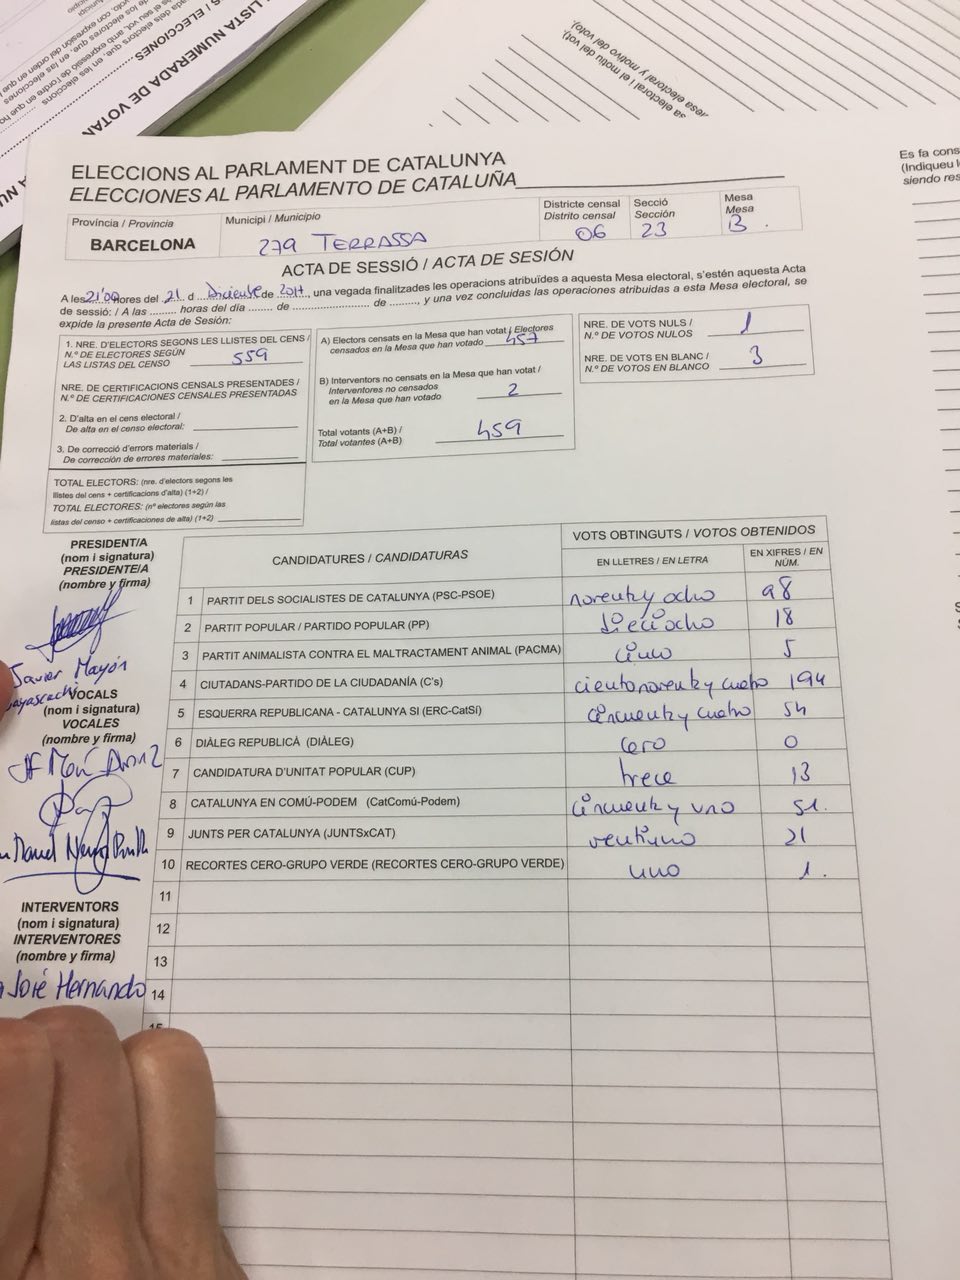 LISTA NUMERADA DE VOTAN
S / ELECCIONES
sa electoral i el motiu del vot).
mesa electoral y motivo del voto).
ELECCIONS AL PARLAMENT DE CATALUNYA
ELECCIONES AL PARLAMENTO DE CATALUÑA
Província / Provincia
BARCELONA
Municipi / Municipio
279 TERRASSA
Districte censal
Distrito censal
06
Secció
Sección
23
Mesa
Mesa
B.
Es fa cons
(Indiqueu l
siendo res
ACTA DE SESSIÓ / ACTA DE SESIÓN
A les 21'00 hores del 21 d Diciembre de 2017, una vegada finalitzades les operacions atribuïdes a aquesta Mesa electoral, s'estén aquesta Acta
de sessió: / A las ......... horas del día ........ de ........................... de ........., y una vez concluidas las operaciones atribuidas a esta Mesa electoral, se
expide la presente Acta de Sesión:
1. NRE. D'ELECTORS SEGONS LES LLISTES DEL CENS /
N.º DE ELECTORES SEGÚN
LAS LISTAS DEL CENSO 559
NRE. DE CERTIFICACIONS CENSALS PRESENTADES /
N.º DE CERTIFICACIONES CENSALES PRESENTADAS
2. D'alta en el cens electoral /
De alta en el censo electoral:
3. De correcció d'errors materials /
De corrección de errores materiales:
TOTAL ELECTORS: (nre. d'electors segons les
llistes del cens + certificacions d'alta) (1+2) /
TOTAL ELECTORES: (nº electores según las
listas del censo + certificaciones de alta) (1+2)
A) Electors censats en la Mesa que han votat / Electores
censados en la Mesa que han votado 457
B) Interventors no censats en la Mesa que han votat /
Interventores no censados
en la Mesa que han votado 2
Total votants (A+B) /
Total votantes (A+B) 459
NRE. DE VOTS NULS /
N.º DE VOTOS NULOS 1
NRE. DE VOTS EN BLANC /
N.º DE VOTOS EN BLANCO 3
PRESIDENT/A
(nom i signatura)
PRESIDENTE/A
(nombre y firma)
Javier Mayón
VOCALS
(nom i signatura)
VOCALES
(nombre y firma)
INTERVENTORS
(nom i signatura)
INTERVENTORES
(nombre y firma)
José Hernando
CANDIDATURES / CANDIDATURAS
VOTS OBTINGUTS / VOTOS OBTENIDOS
EN LLETRES / EN LETRA
EN XIFRES / EN
NÚM.
1 PARTIT DELS SOCIALISTES DE CATALUNYA (PSC-PSOE) noventa y ocho 98
2 PARTIT POPULAR / PARTIDO POPULAR (PP) dieciocho 18
3 PARTIT ANIMALISTA CONTRA EL MALTRACTAMENT ANIMAL (PACMA) cinco 5
4 CIUTADANS-PARTIDO DE LA CIUDADANÍA (C's) ciento noventa y cuatro 194
5 ESQUERRA REPUBLICANA - CATALUNYA SI (ERC-CatSí) cincuenta y cuatro 54
6 DIÀLEG REPUBLICÀ (DIÀLEG) cero 0
7 CANDIDATURA D'UNITAT POPULAR (CUP) trece 13
8 CATALUNYA EN COMÚ-PODEM (CatComú-Podem) cincuenta y uno 51.
9 JUNTS PER CATALUNYA (JUNTSxCAT) ventiuno 21
10 RECORTES CERO-GRUPO VERDE (RECORTES CERO-GRUPO VERDE) uno 1.
11
12
13
14
15